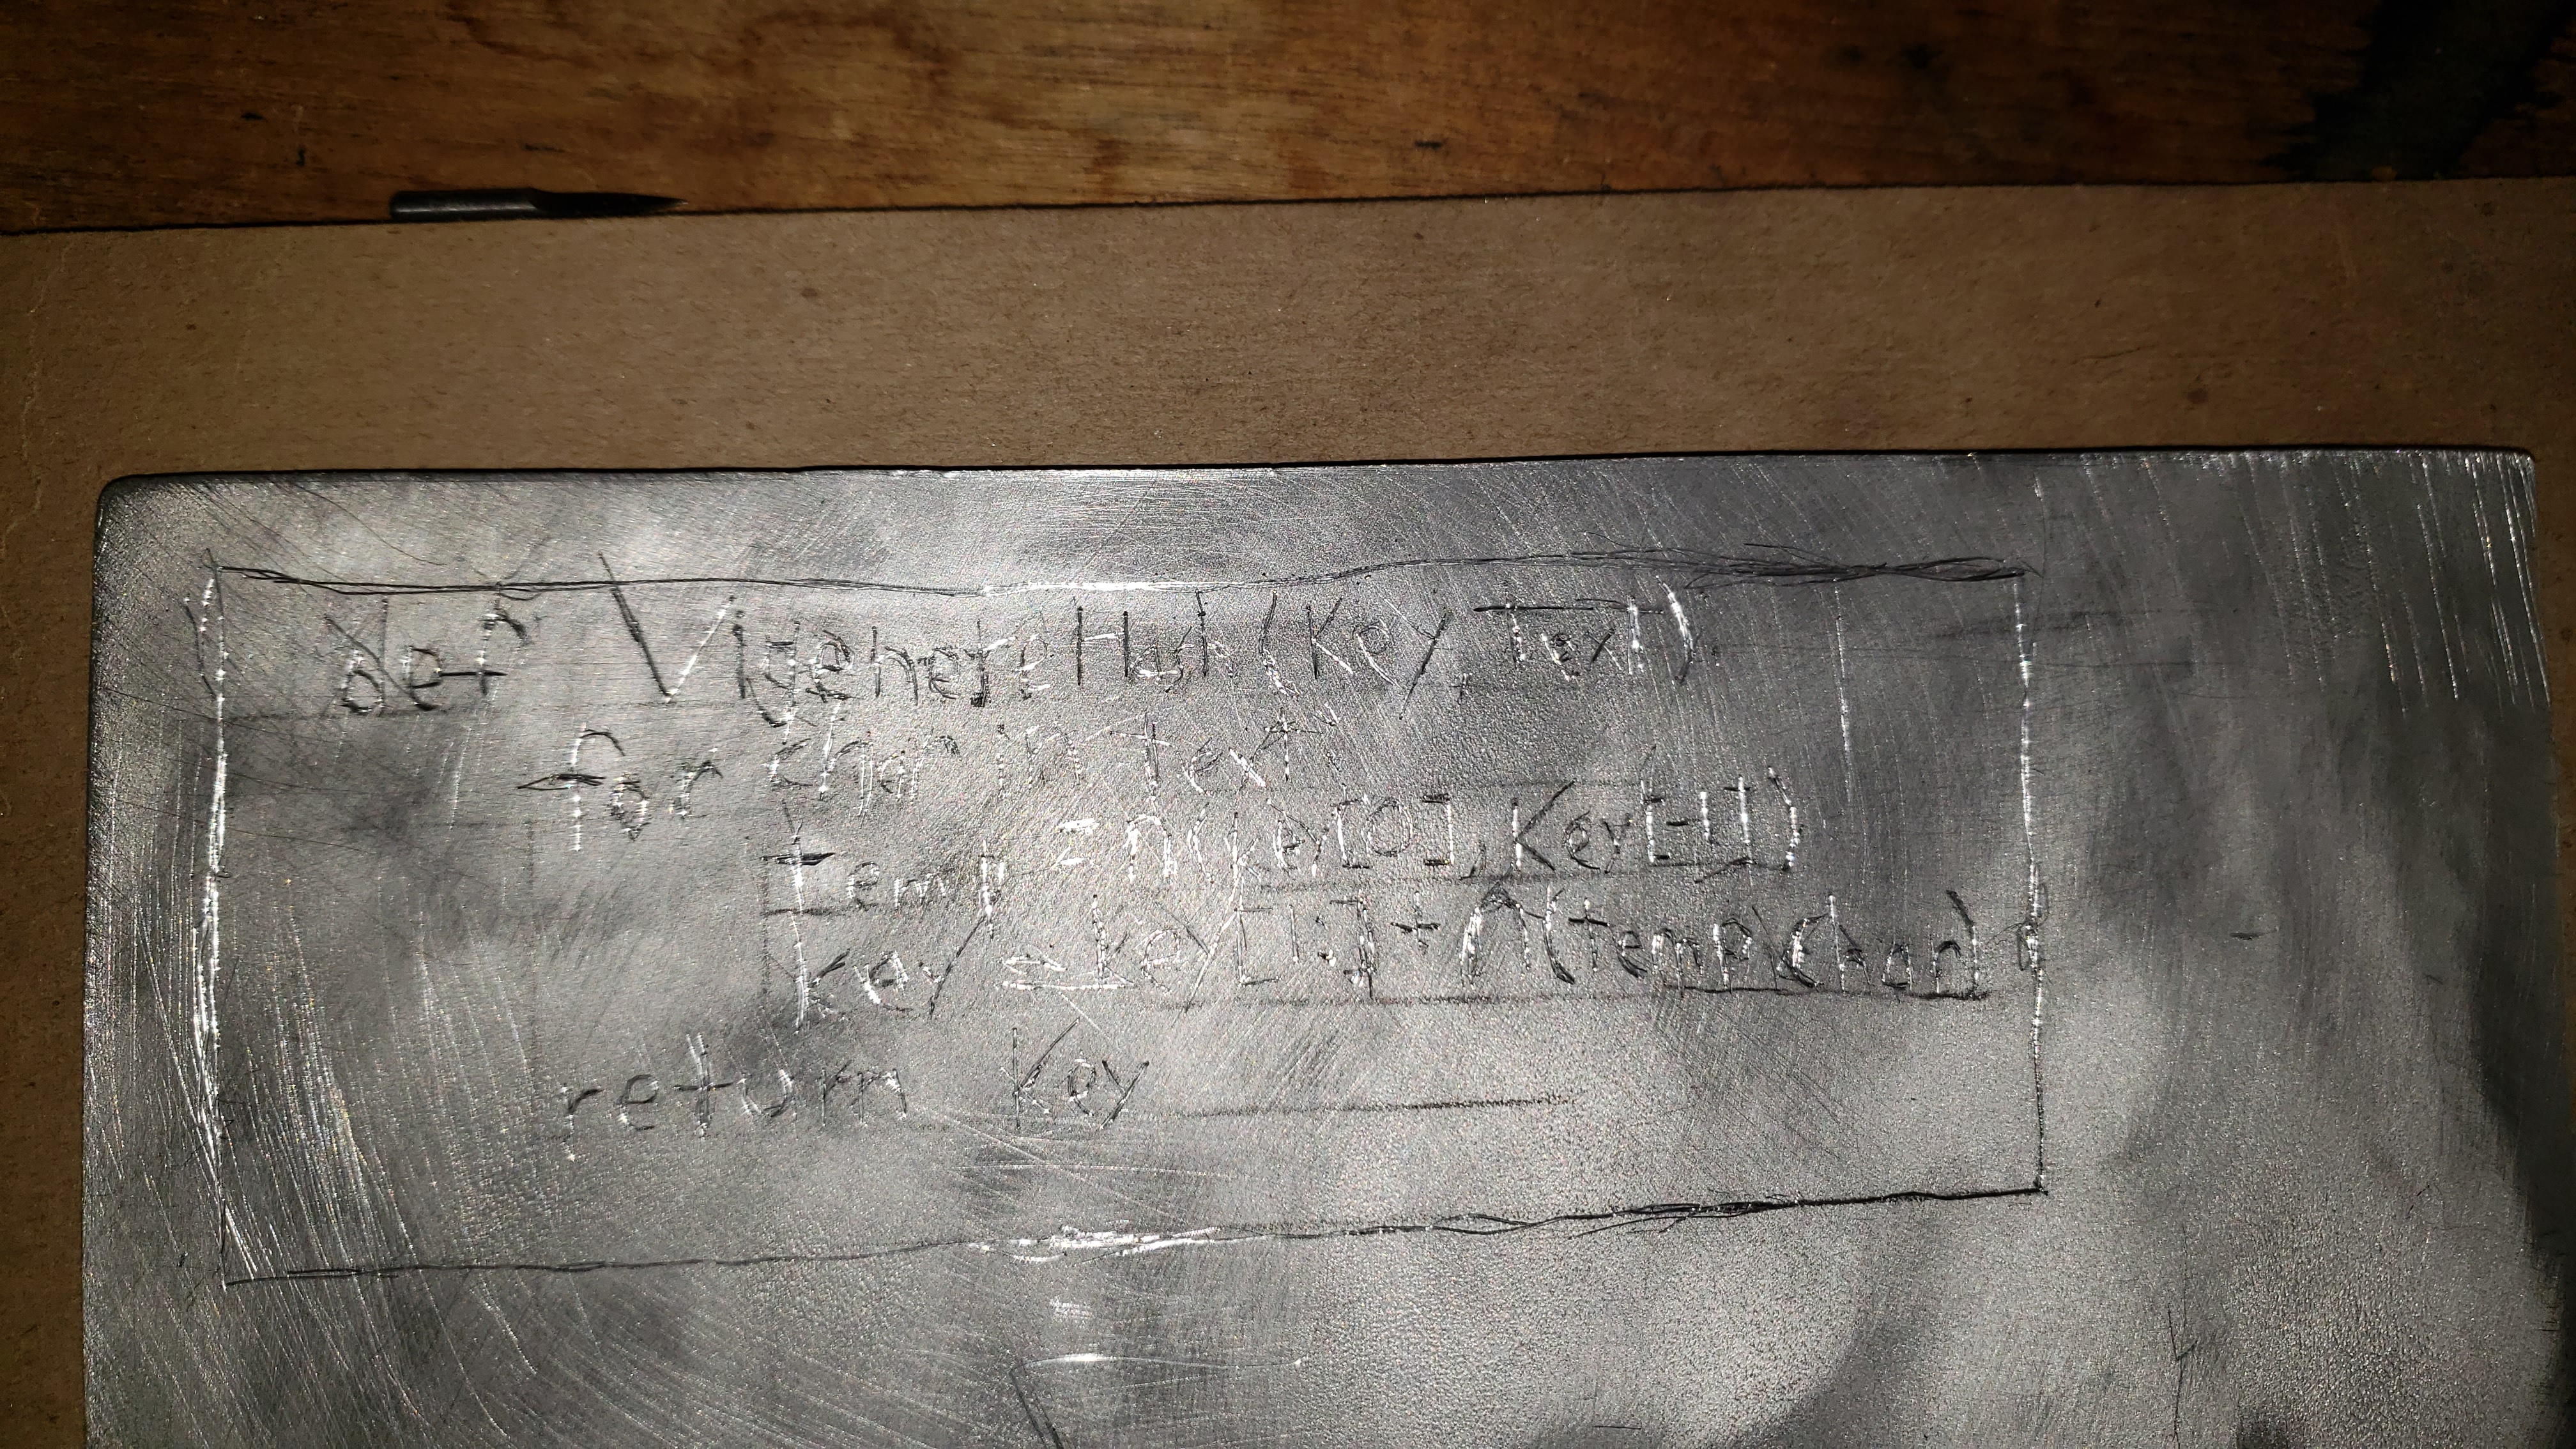 def VigenereHuh(Key, Text)
for char in text
temp = n(key[0], Key[-1])
key = key[1:] + n(temp, char)
return Key